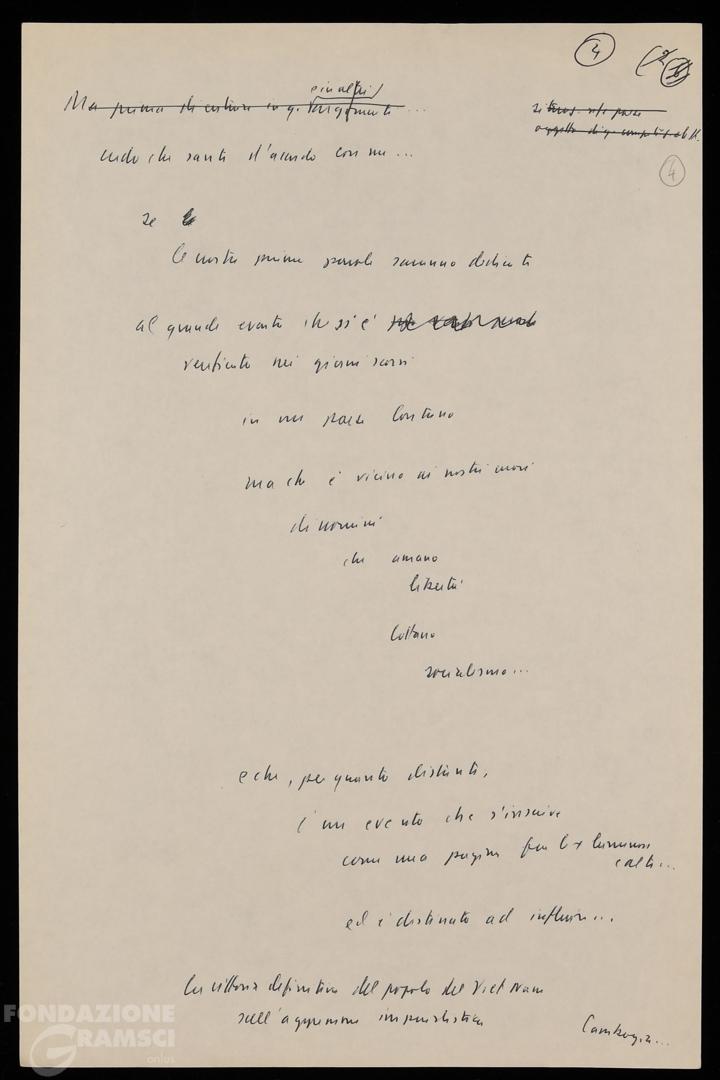 4
Ma prima di entrare in q. argomenti ...
credo che sarete d'accordo con me ...
4
se
le nostre prime parole saranno dedicate
al grande evento che si è
verificato nei giorni scorsi
in un paese lontano
ma che è vicino ai nostri cuori
di uomini
che amano
libertà
lottano
socialismo...
e che, per quanto distante,
è un evento che s'inscrive
come una pagina fra le + luminose
e alte...
ed è destinato ad influire...
La vittoria definitiva del popolo del Vietnam
sull'aggressione imperialistica
Cambogia...
FONDAZIONE
GRAMSCI
onlus